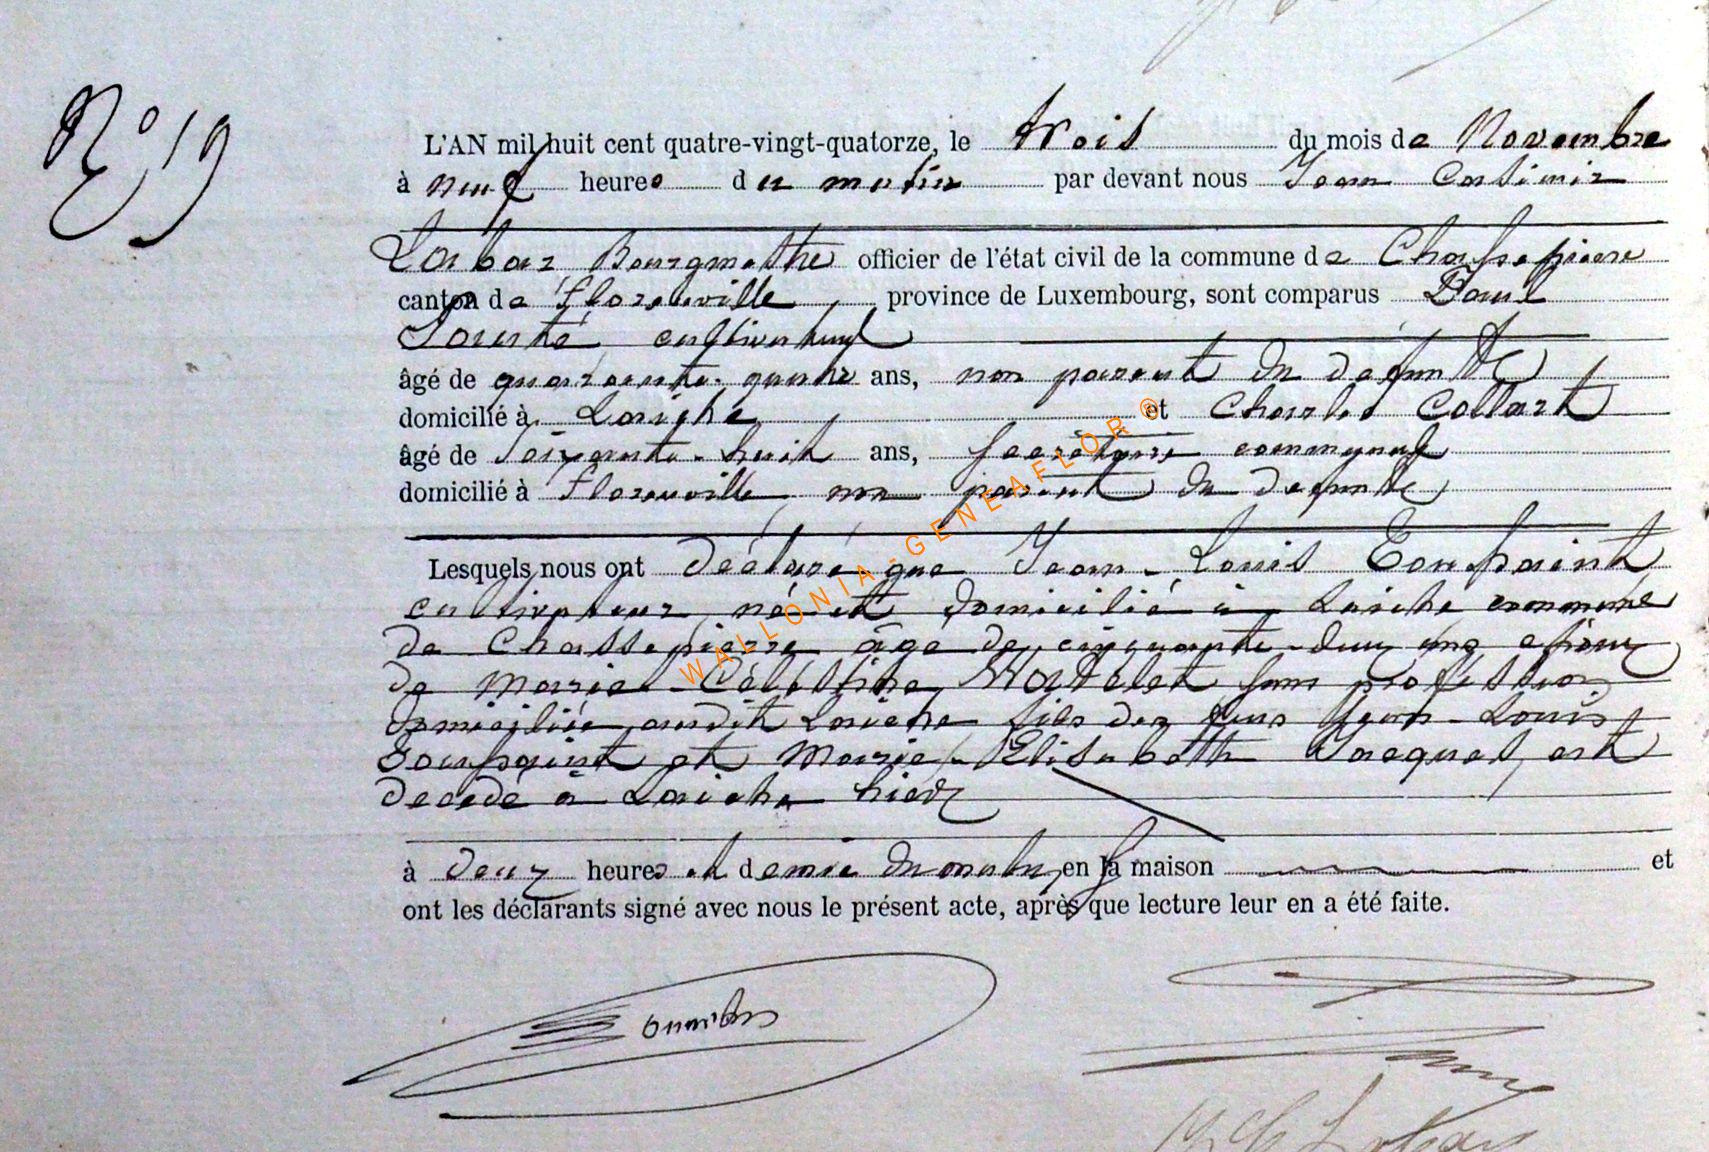 N° 19
L'AN mil huit cent quatre-vingt-quatorze, le trois du mois de Novembre
à neuf heures du matin par devant nous Jean Casimir
Labar, Bourgmestre officier de l'état civil de la commune de Chassepierre
canton de Florenville, province de Luxembourg, sont comparus Paul
cultivateur
âgé de quarante-quatre ans, non parent du défunt
domicilié à Laiche et Charles Collart
âgé de Soixante-huit ans, secrétaire communal
domicilié à Florenville, non parent du défunt
Lesquels nous ont déclaré que Jean-Louis Toussaint
cultivateur, né et domicilié à Laiche commune
de Chassepierre âgé de cinquante-deux ans époux
de Marie-Célestine Watelet sans profession
domiciliée audit Laiche fils des feus Jean-Louis
Toussaint et Marie-Elisabeth Jacques, est
décédé à Laiche hier
à deux heures et demie du matin, en sa maison et
ont les déclarants signé avec nous le présent acte, après que lecture leur en a été faite.
WALLONIA-GENEAFLOR ®